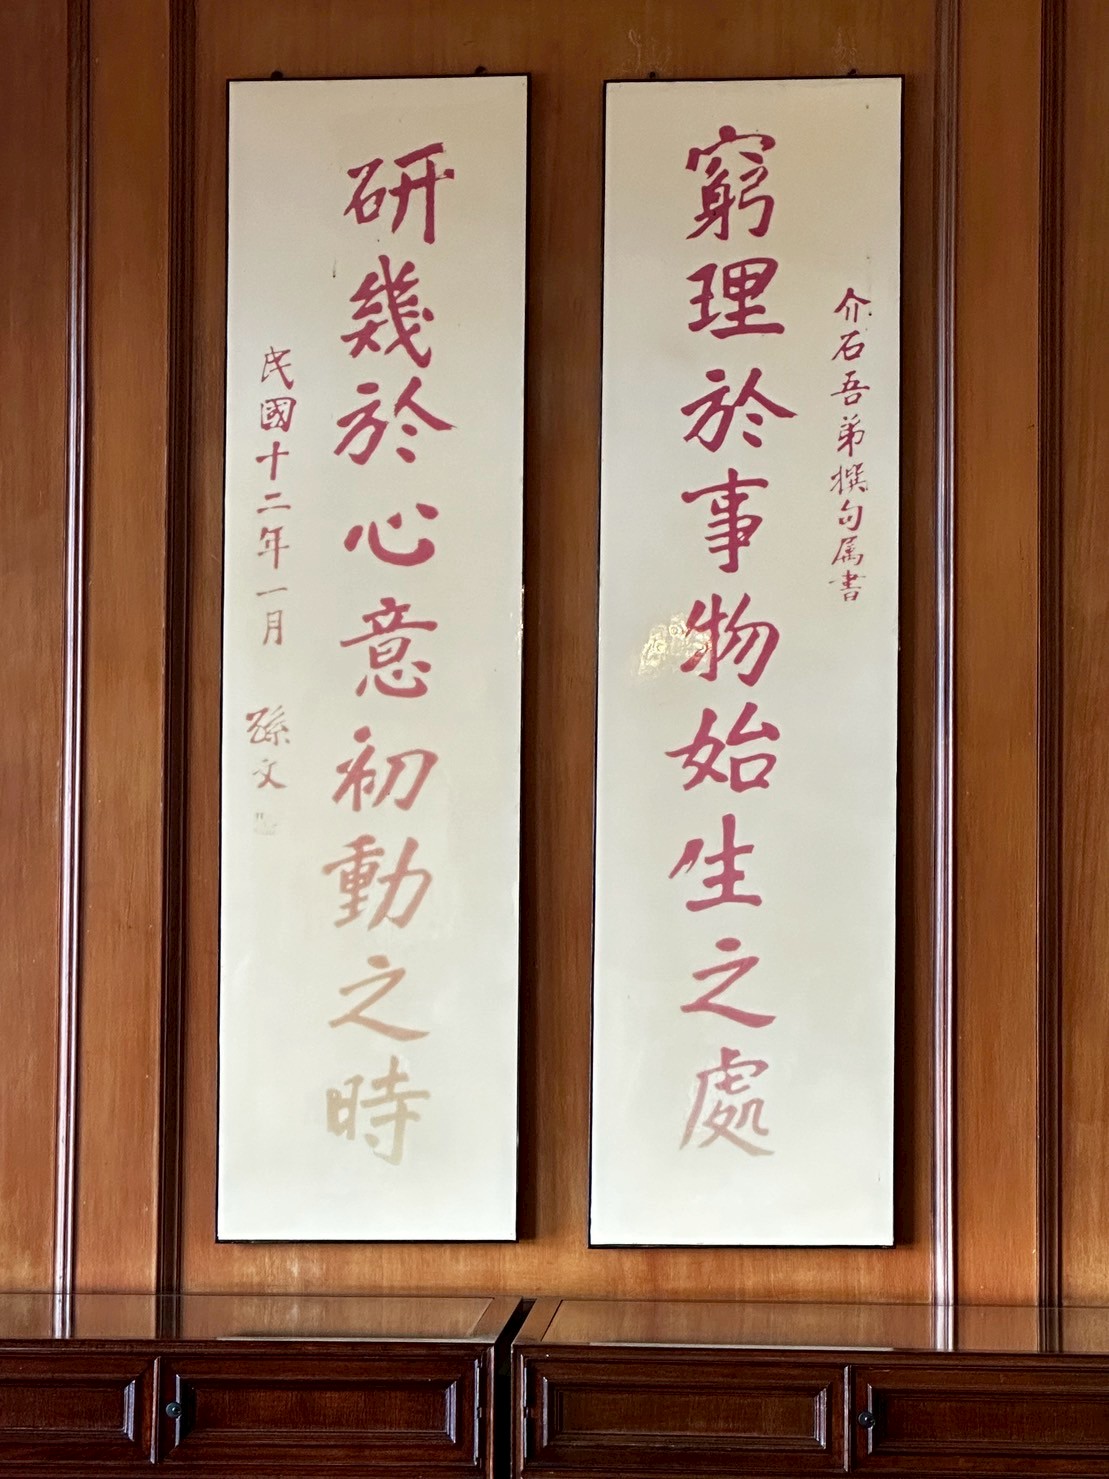 介石吾弟撰句属書
窮理於事物始生之處
研幾於心意初動之時
民國十二年一月 孫文